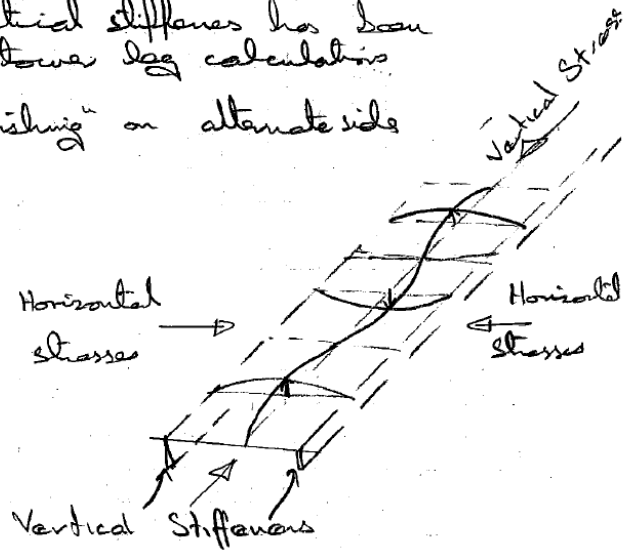 tical stiffenes has been
tower leg calculations
ishing" on alternate side
Vertical Stress
Horizontal
stresses
Horizontal
stresses
Vertical Stiffeners